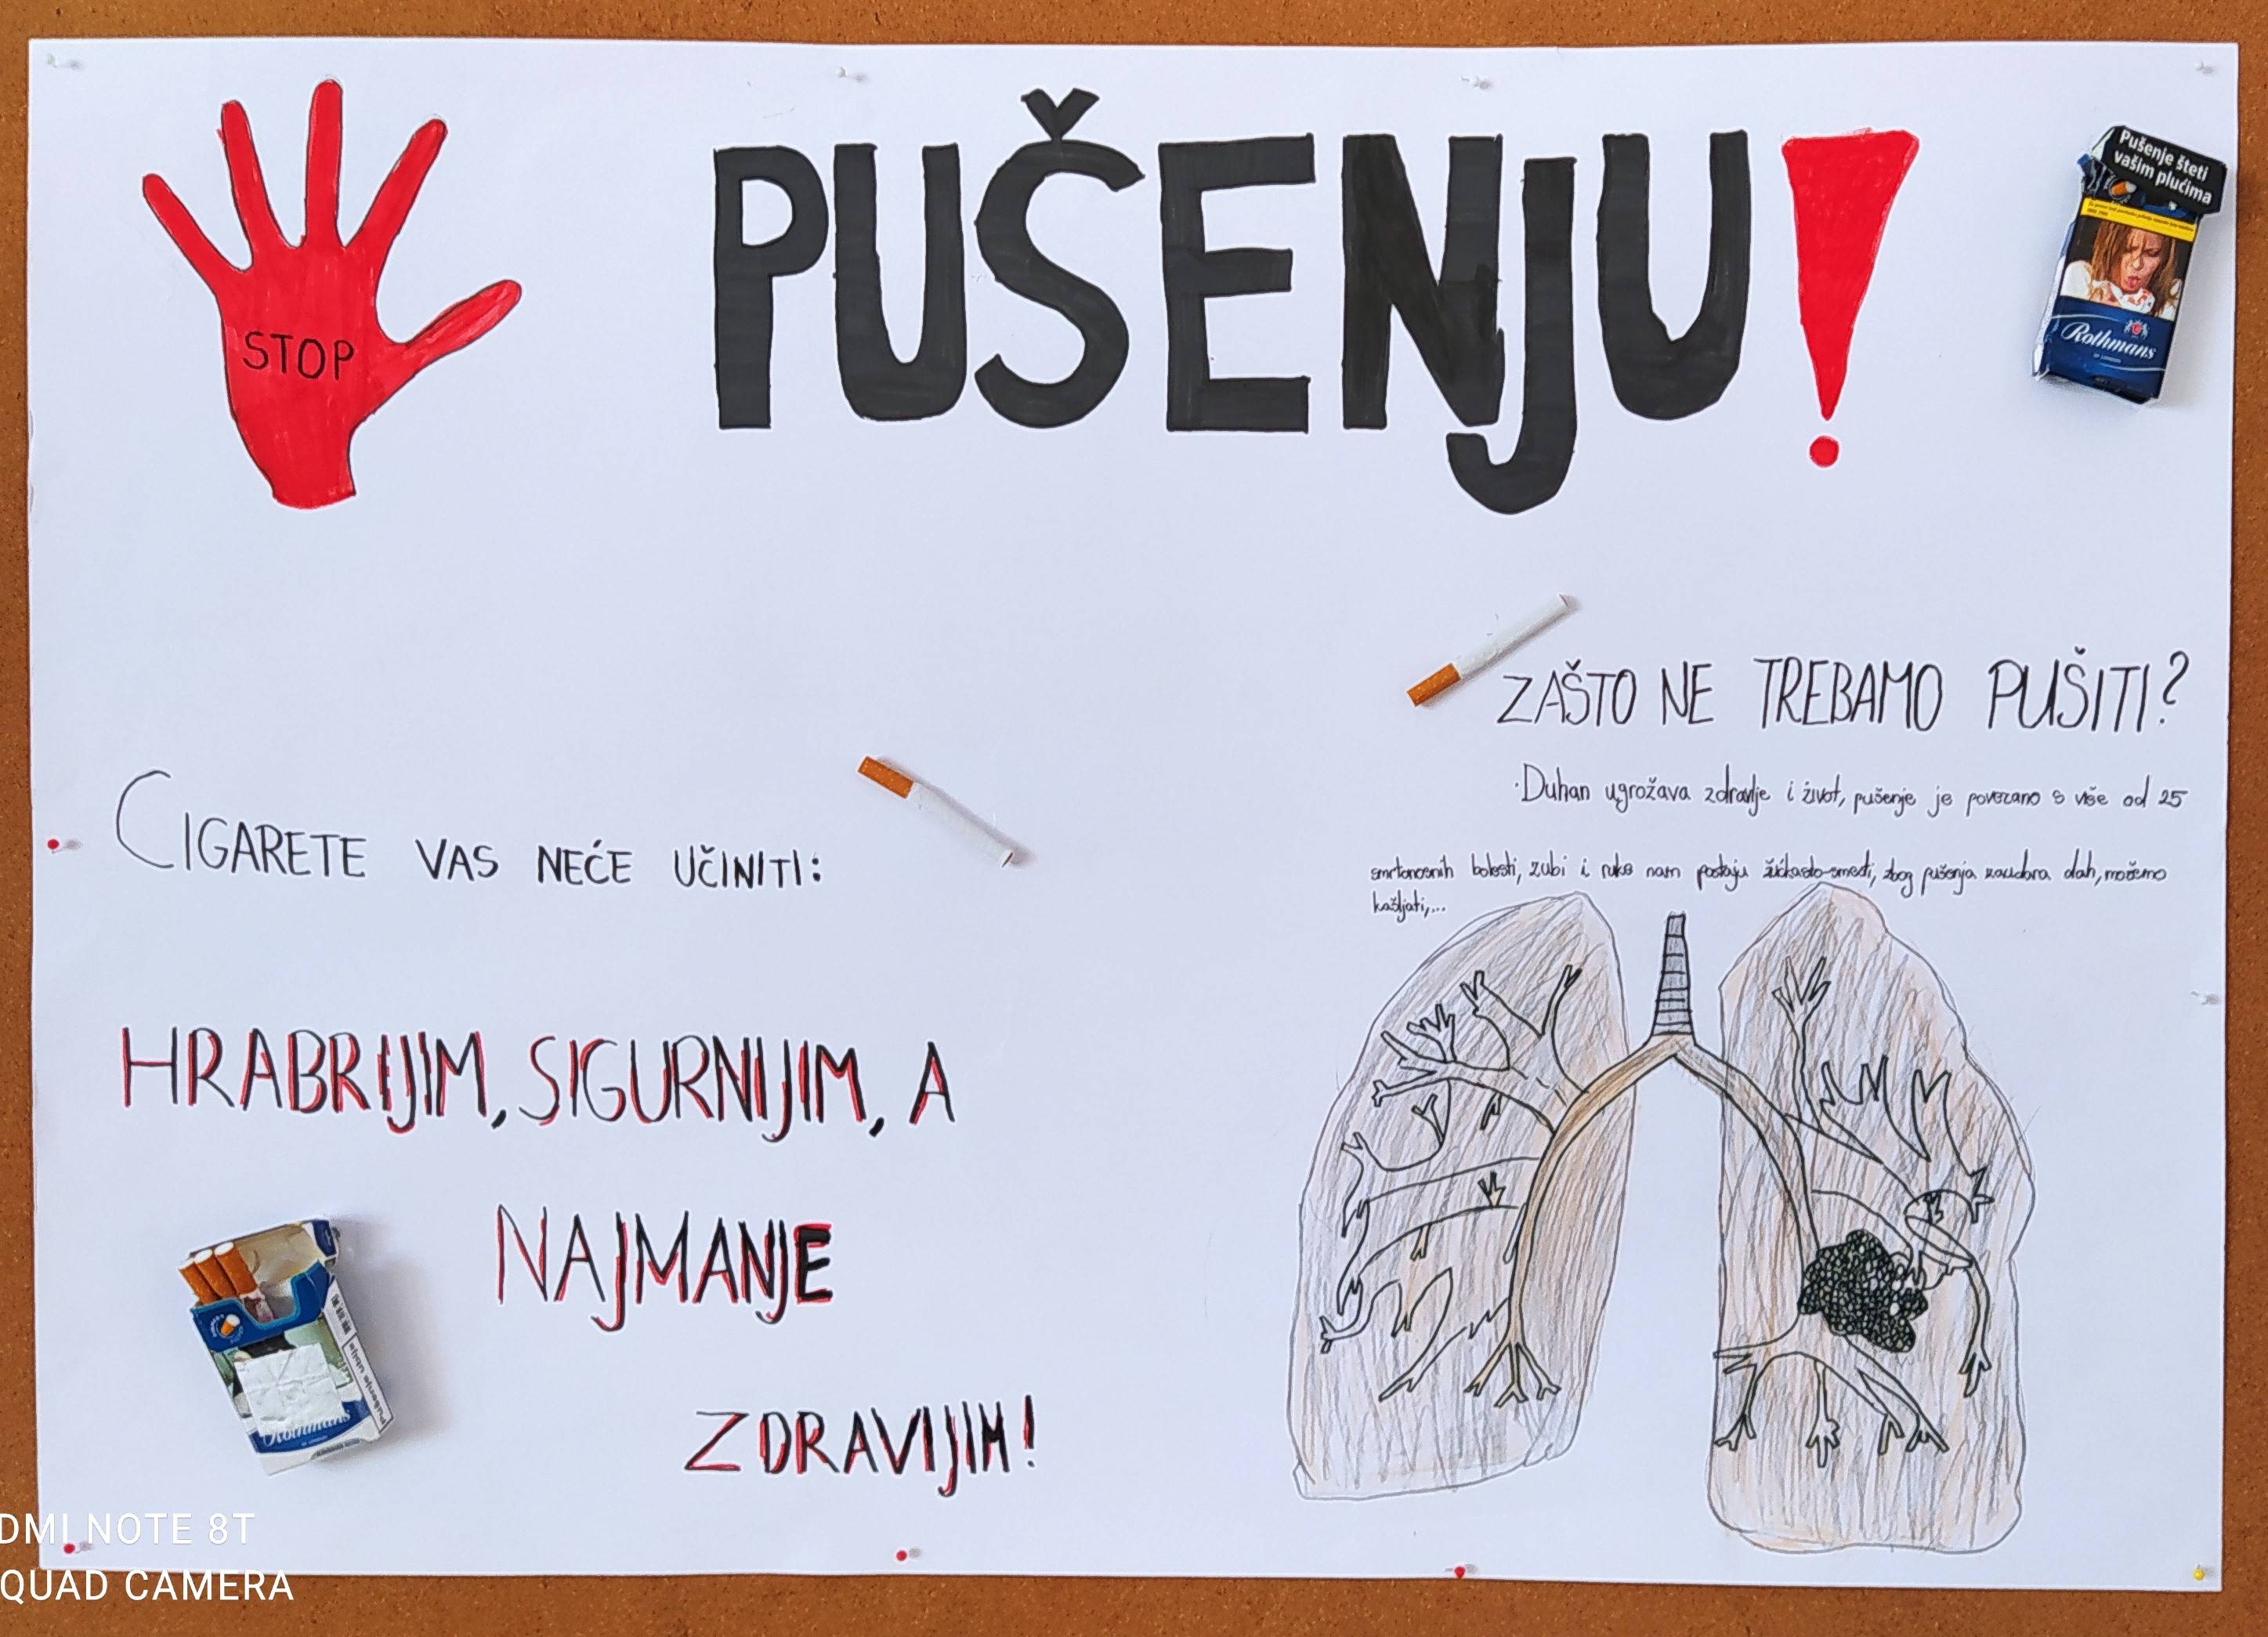 STOP
PUŠENJU!
Pušenje šteti
vašim plućima
Rothmans
OF LONDON
ZAŠTO NE TREBAMO PUŠITI?
·Duhan ugrožava zdravlje i život, pušenje je povezano s više od 25
smrtonosnih bolesti, zubi i ruke nam postaju žućkasto-smeđi, zbog pušenja zaudara dah, možemo
kašljati,...
CIGARETE VAS NEĆE UČINITI:
HRABRIJIM, SIGURNIJIM, A
NAJMANJE
ZDRAVIJIM!
Pušenje ubija
Rothmans
DMI NOTE 8T
QUAD CAMERA